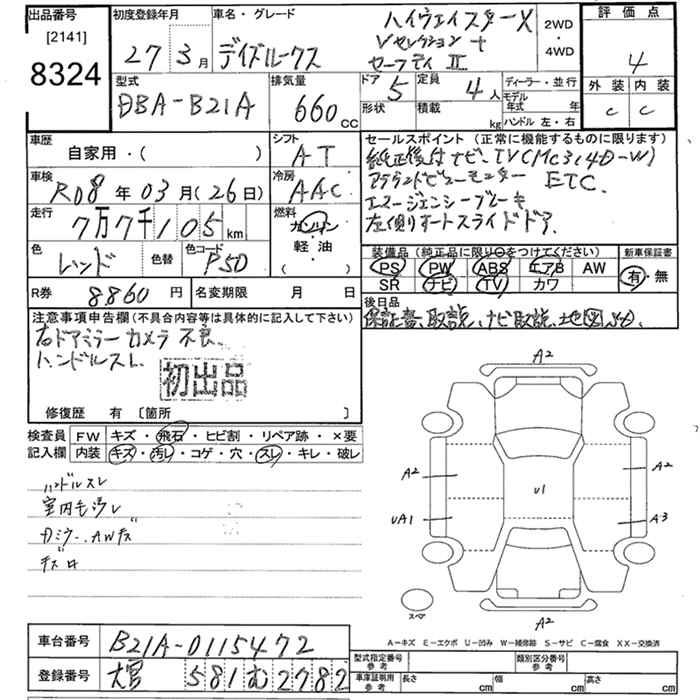 出品番号
[2141]
8324
初度登録年月
27 3月
車名・グレード
デイズルークス
ハイウェイスターX
Vセレクション+
セーフティⅡ
2WD
・
4WD
評価点
4
外装 内装
C C
型式
DBA-B21A
排気量
660 CC
ドア 5
定員 4人
形状
積載 kg
ディーラー・並行
モデル年式 年
ハンドル 左・右
車歴
自家用・( )
シフト
AT
車検
R08年03月(26日)
冷房
AAC
走行
7万7千105km
燃料
ガソリン
軽油
( )
色
レッド
色替
色コード
P50
R券
8860円
名変期限 月 日
セールスポイント (正常に機能するものに限ります)
純正後付ナビ、TV(MC314D-W)
アラウンドビューモニター ETC.
エマージェンシーブレーキ
左側オートスライドドア
装備品 (純正品に限り○をつけてください)
PS PW ABS エアB AW
SR ナビ TV カワ
新車保証書
有・無
後日品
保証書、取説、ナビ取説、
注意事項申告欄 (不具合内容等は具体的に記入して下さい)
右ドアミラーカメラ不良
ハンドルスレ
初出品
修復歴 有 〔箇所 〕
検査員記入欄
FW キズ・飛石・ヒビ割・リペア跡・×要
内装 キズ・汚レ・コゲ・穴・スレ・キレ・破レ
ハンドルスレ
室内毛汚レ
AWキズ
A2
A2
A2
U1
UA1
A3
スペア
A2
A-キズ E-エクボ U-凹み W-補修跡 S-サビ C-腐食 XX-交換済
車台番号
B21A-0115472
登録番号
大宮 581 む 2782
型式指定番号
参考
類別区分番号
参考
車庫証明用
参考
長さ cm
幅 cm
高さ cm